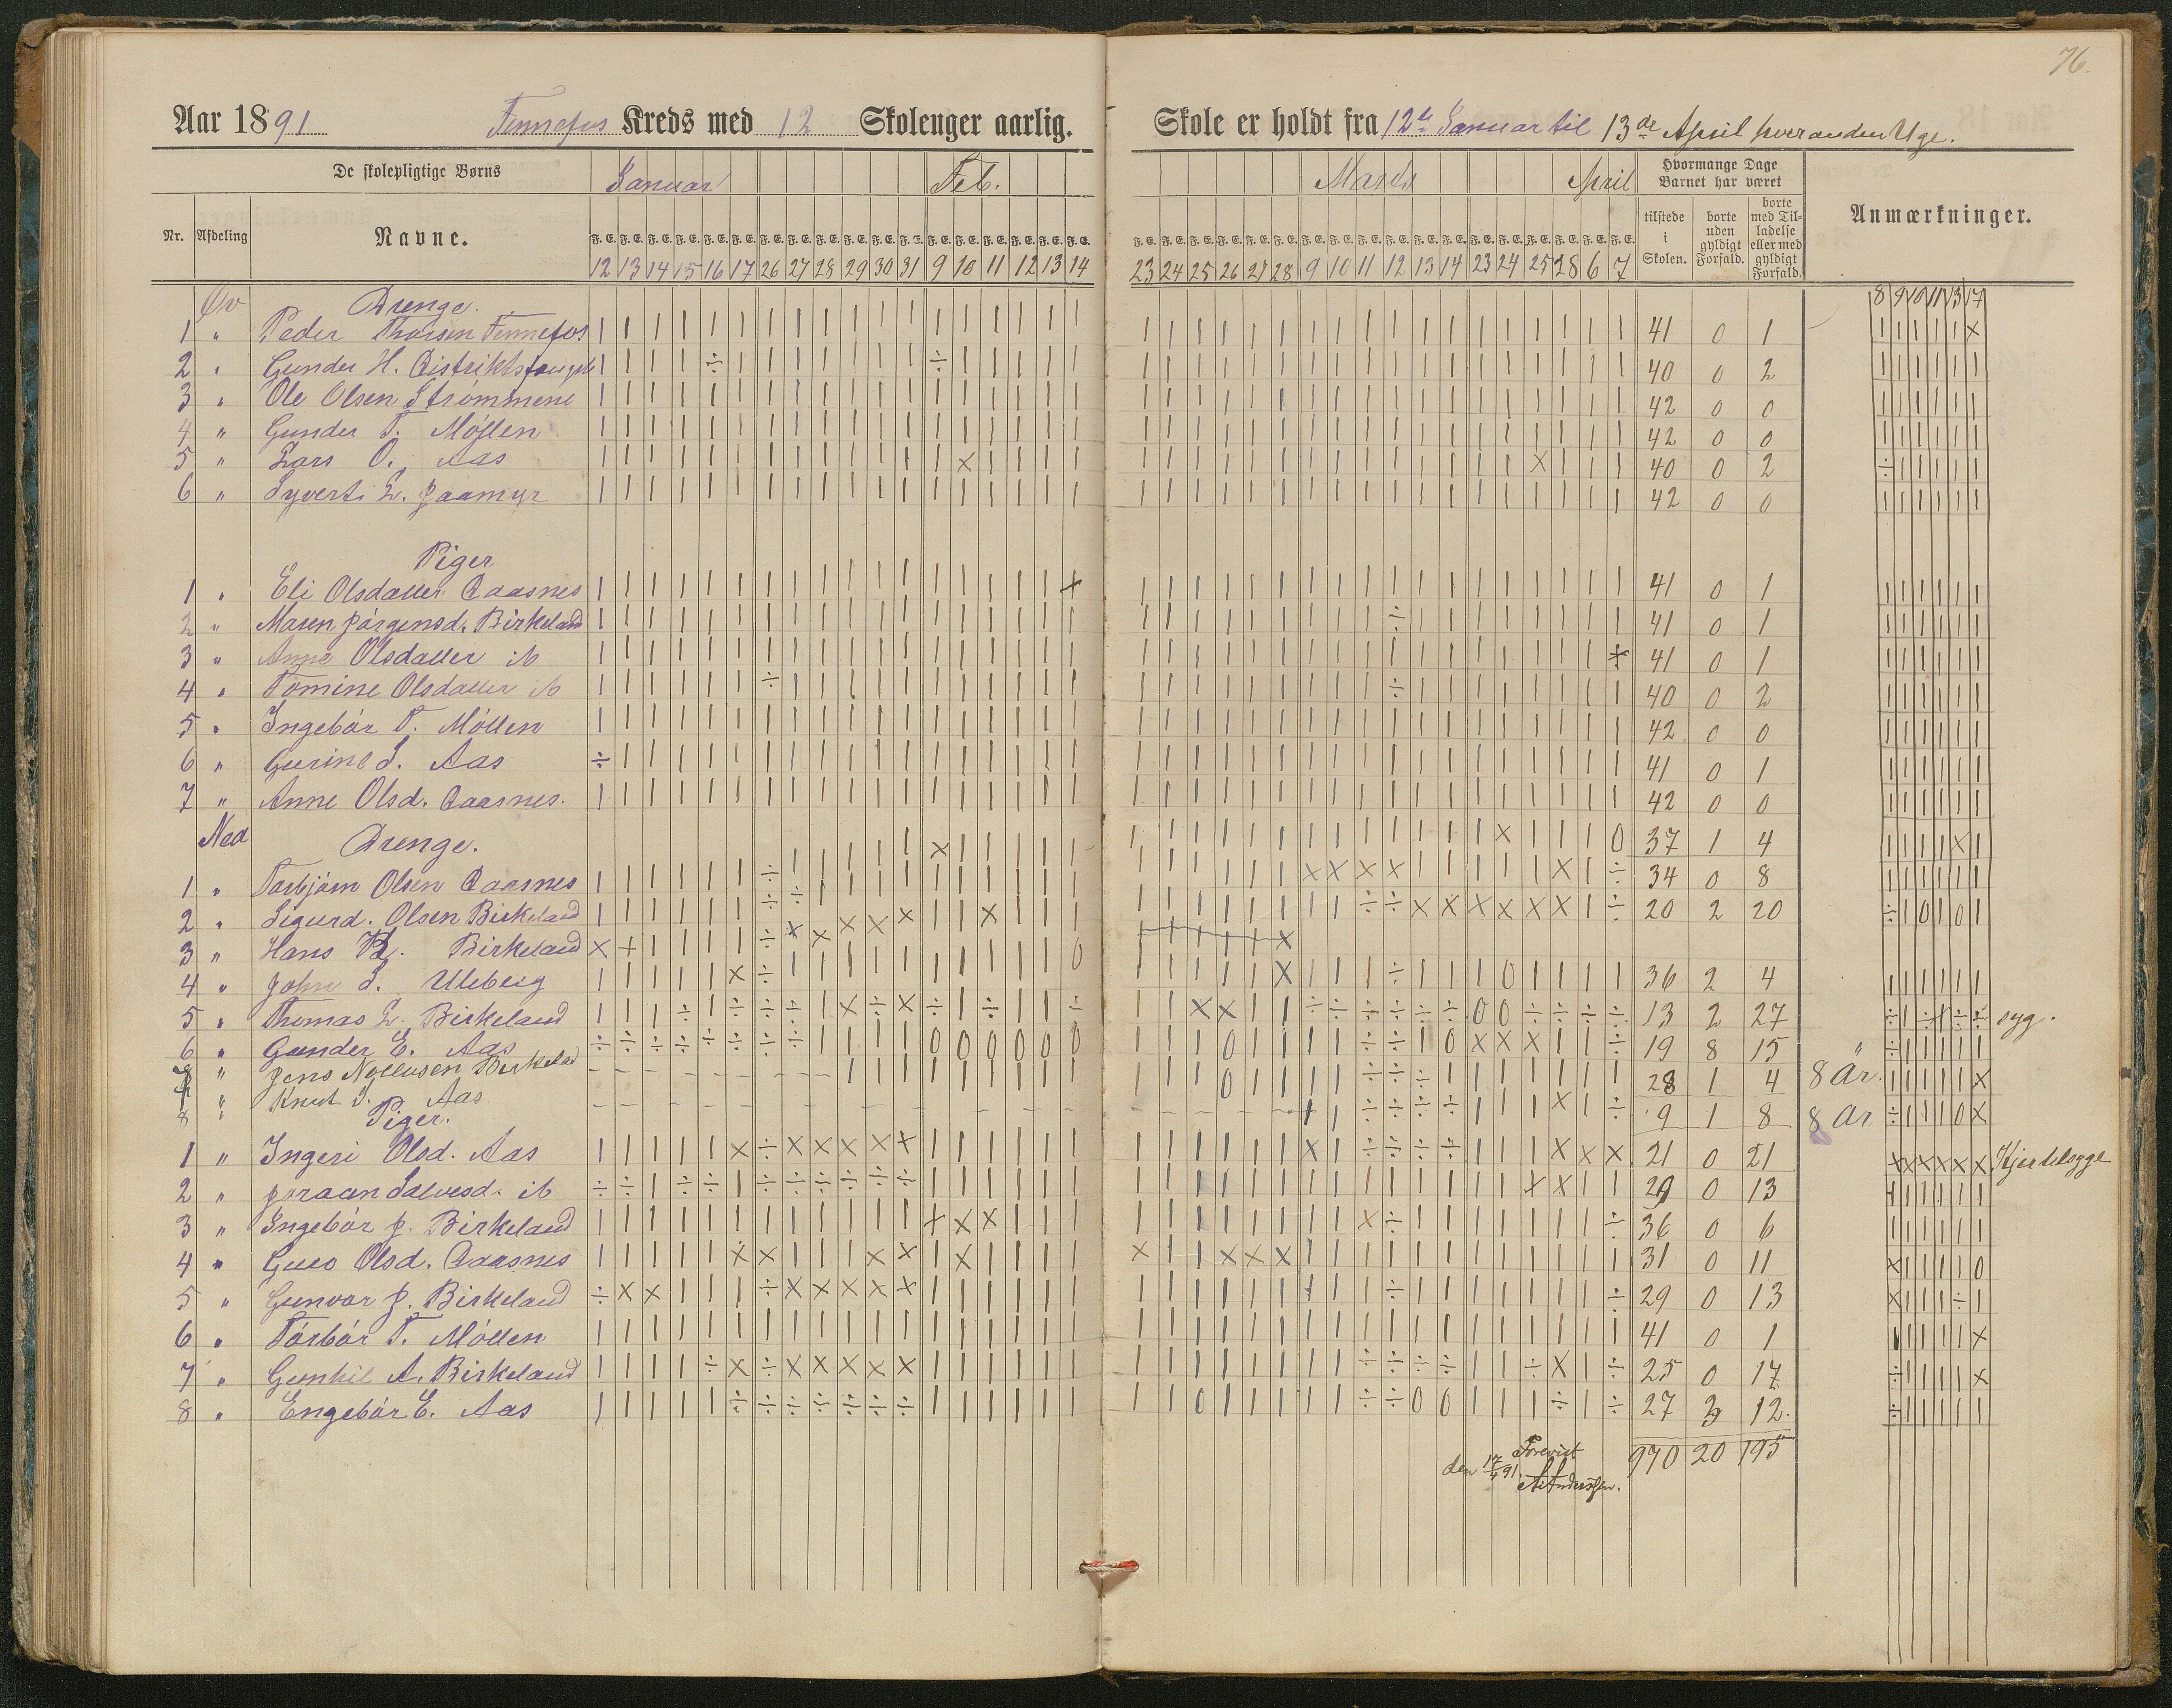 76.
Aar 1891 Fennefos Kreds med 12 Skoleuger aarlig.
Skole er holdt fra 12te Januar til 13de April hver anden Uge.
De skolepligtige Børns
Januar Feb.
Marts April
Hvormange Dage Barnet har været
Anmærkninger.
Nr. Afdeling Navne.
tilstede i Skolen.
borte uden gyldigt Forfald.
borte med Tilladelse eller med gyldigt Forfald.
12 13 14 15 16 17 26 27 28 29 30 31 9 10 11 12 13 14
23 24 25 26 27 28 9 10 11 12 13 14 23 24 25 28 6 7
8 9 10 11 13 17
Øv Drenge.
1 " Peder Thorsen Fennefos 41 0 1
2 " Gunder H. Distriktsfængsl 40 0 2
3 " Ole Olsen Strømmene 42 0 0
4 " Gunder T. Möllen 42 0 0
5 " Lars O. Aas 40 0 2
6 " Syvert L. Jaamyr 42 0 0
Piger
1 " Eli Olsdatter Daasnes 41 0 1
2 " Maren Jörgensd. Birkeland 41 0 1
3 " Anne Olsdatter ib 41 0 1
4 " Tomine Olsdatter ib 40 0 2
5 " Ingebór T. Möllen 42 0 0
6 " Gurine S. Aas 41 0 1
7 " Anne Olsd. Daasnes. 42 0 0
Ned Drenge.
1 " Torbjörn Olsen Daasnes 37 1 4
2 " Sigurd. Olsen Birkeland 34 0 8
3 " Hans Birkeland 20 2 20
4 " John S. Uleberg 36 2 4
5 " Thomas L. Birkeland 13 2 27 syg.
6 " Gunder E. Aas 19 8 15
7 " Jens Birkeland 28 1 4 8 År.
8 " Knut S. Aas 9 1 8 8 Ar
Piger.
1 " Ingeri Olsd. Aas 21 0 21 Kjertelsyge
2 " Joraan Salvesd. ib 29 0 13
3 " Ingebór J. Birkeland 36 0 6
4 " Guro Olsd. Daasnes 31 0 11
5 " Gunvor J. Birkeland 29 0 13
6 " Tórbór T. Möllen 41 0 1
7 " Gunhil A. Birkeland 25 0 17
8 " Engebór E. Aas 27 3 12.
970 20 195
Forevist
den 17/4 91
A. Anderssen.